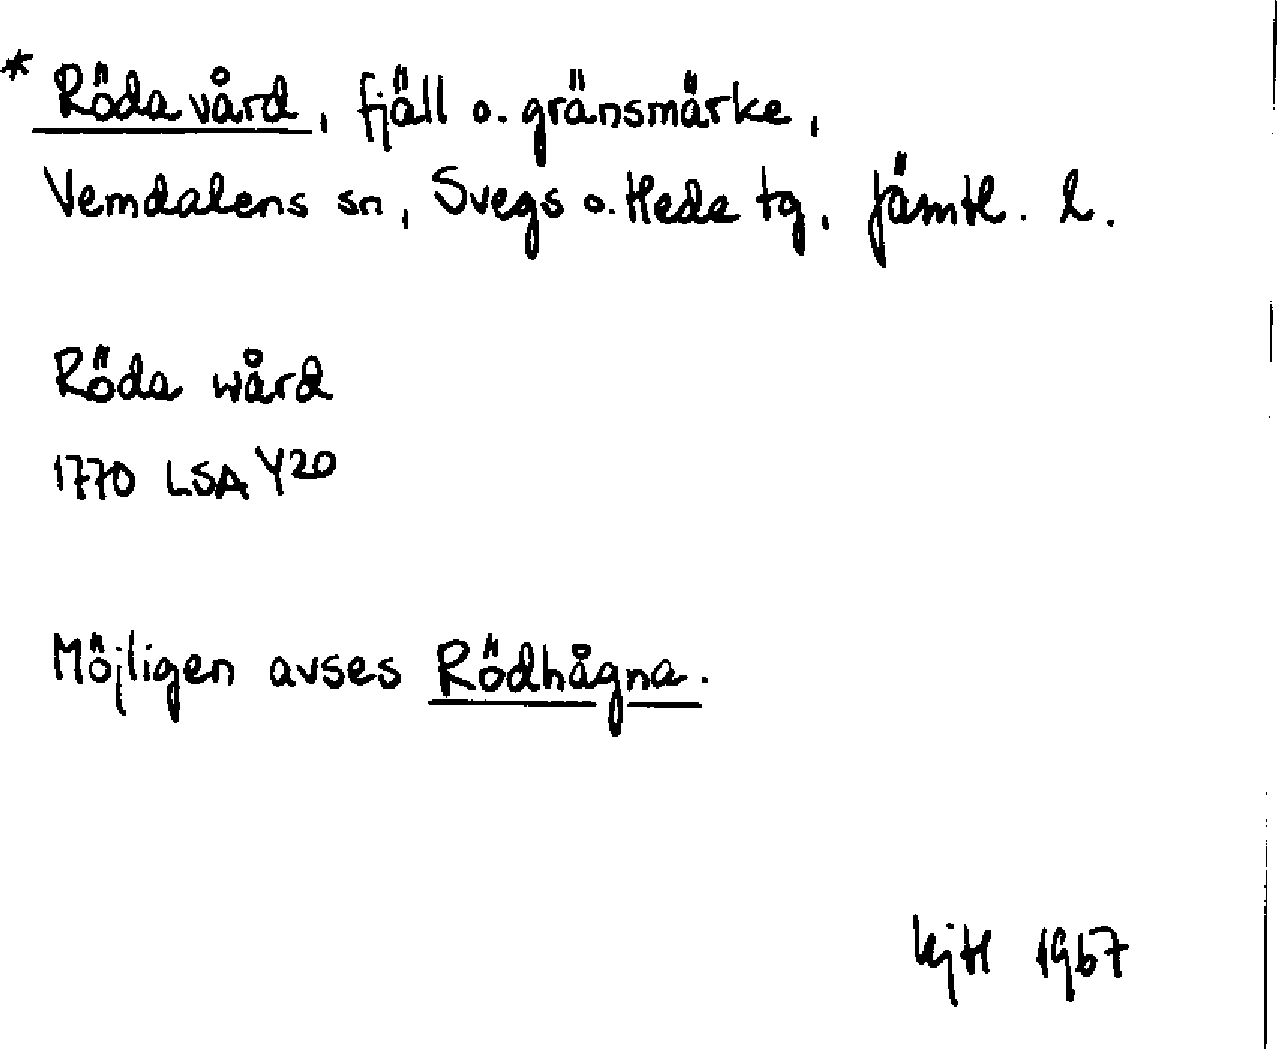 * Röda vård, fjäll o. gränsmärke,
Vemdalens sn, Svegs o. Heda tg, Jämtl. l.
Röda wård
1770 LSA Y20
Möjligen avses Rödhågna.
KjH 1967